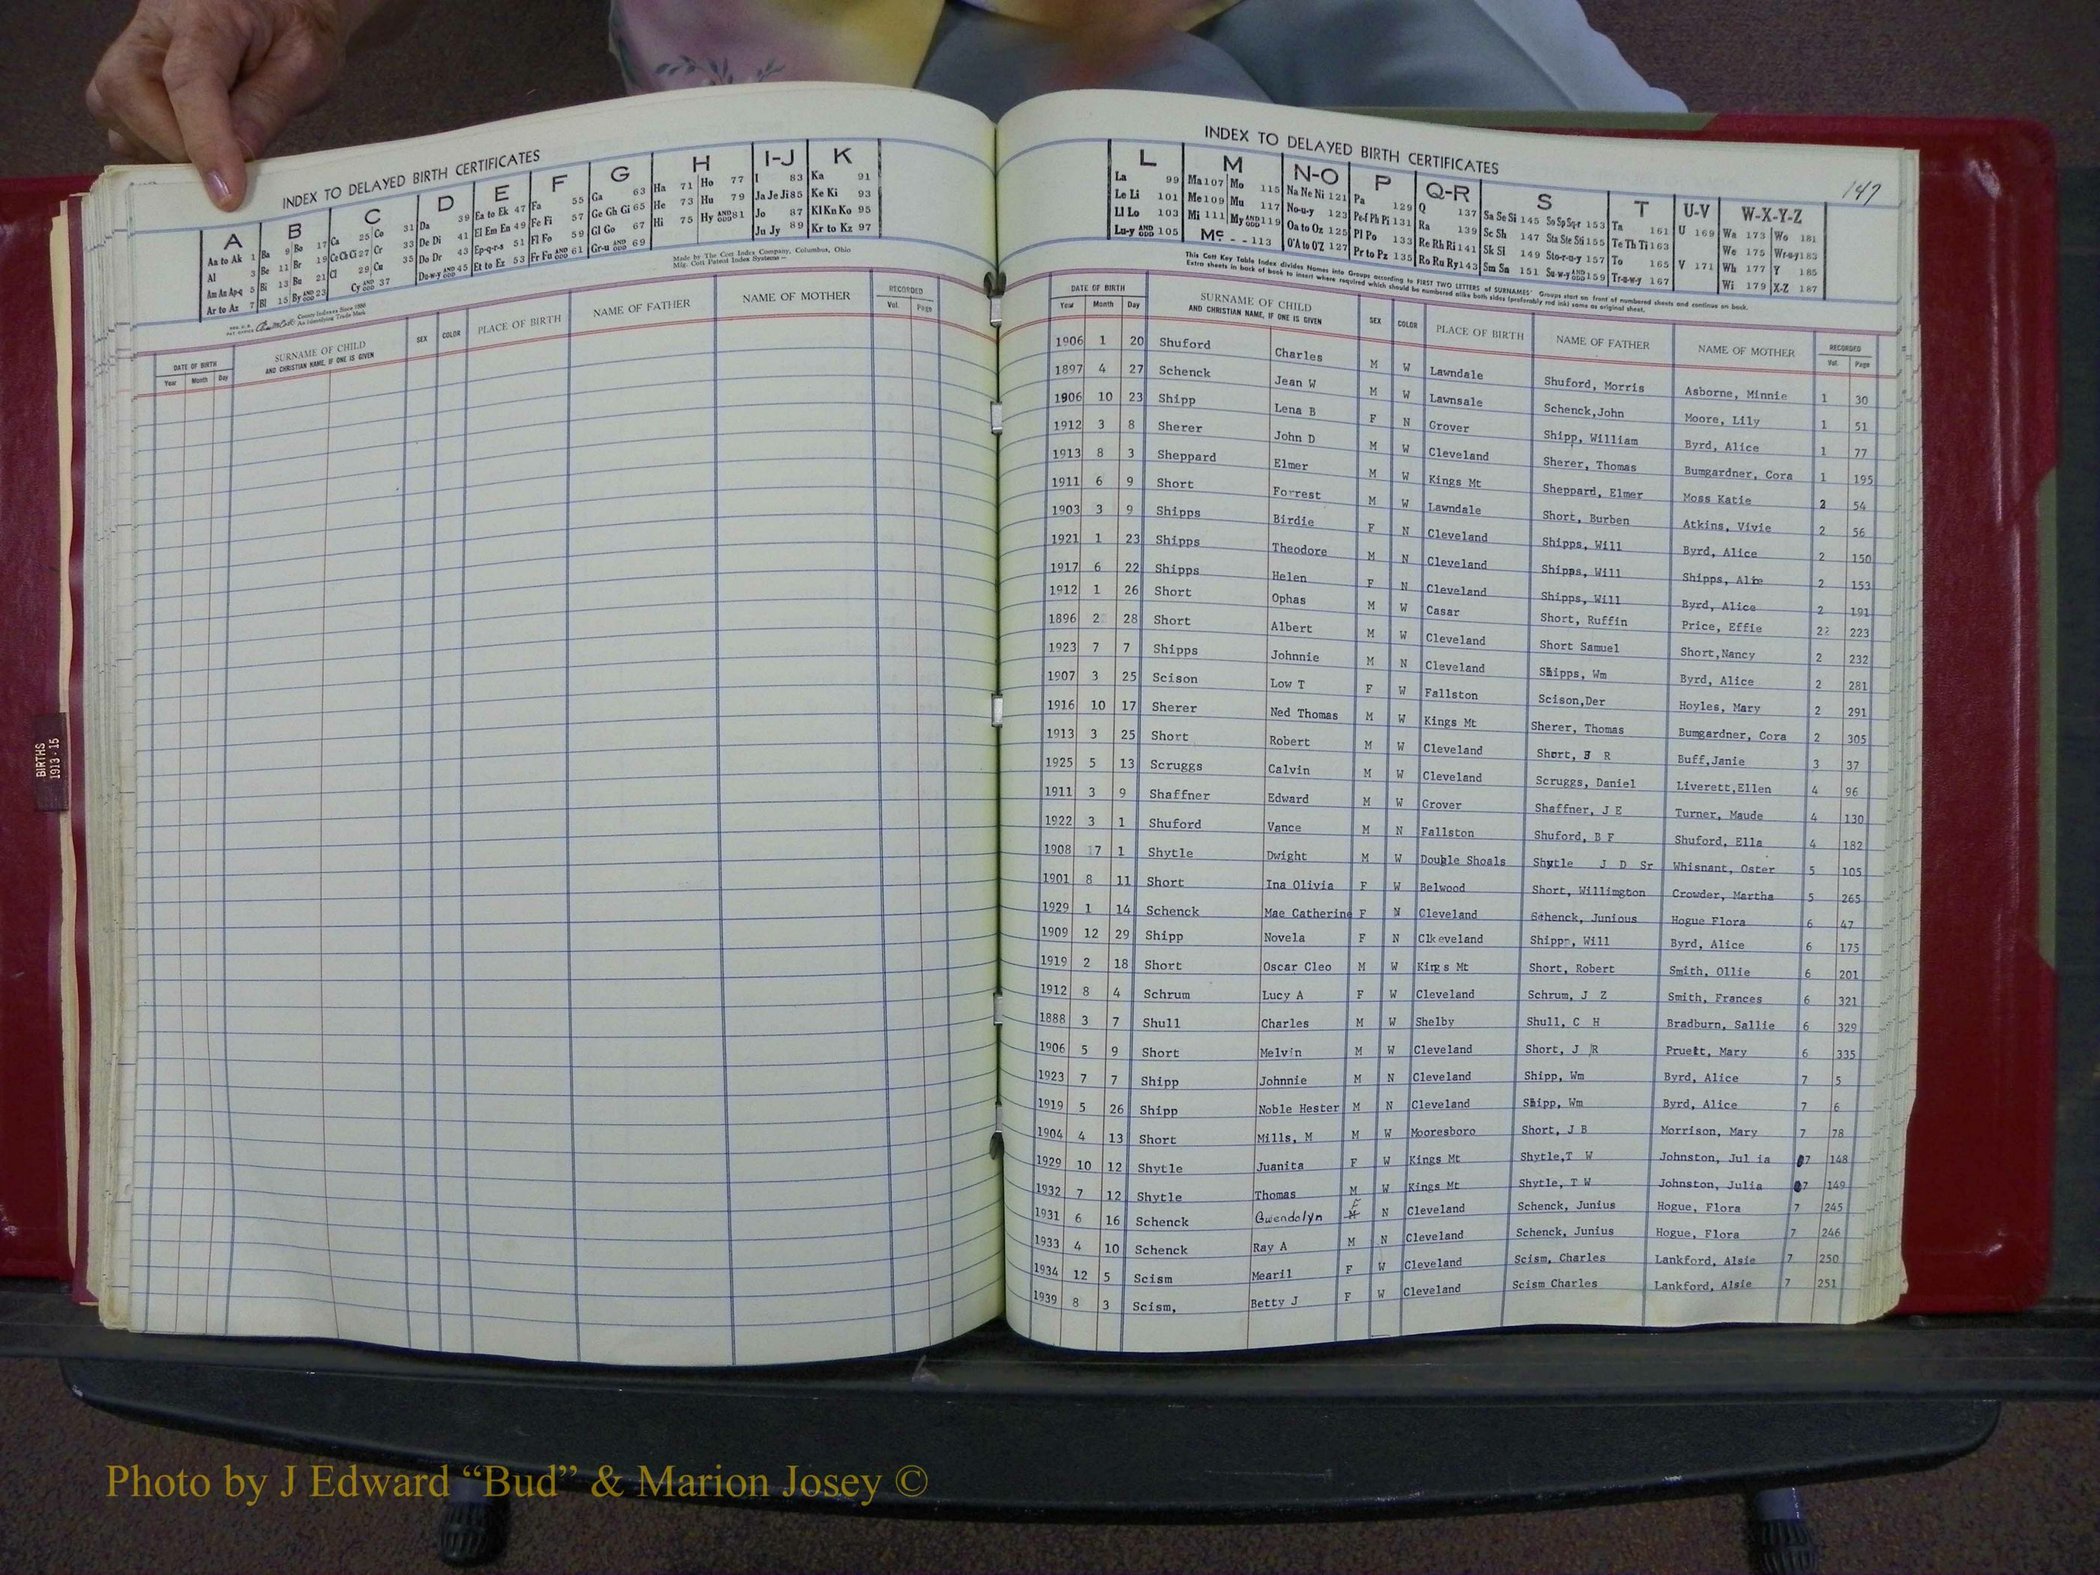 INDEX TO DELAYED BIRTH CERTIFICATES
A B C D E F G H I-J K
Aa to Ak 1 Ba 9 Bo 17 Ca 25 Co 31 Da 39 Ea to Ek 47 Fa 55 Ga 63 Ha 71 Ho 77 I 83 Ka 91
Al 3 Be 11 Br 19 Ce Ch Ci 27 Cr 33 De Di 41 El Em En 49 Fe Fi 57 Ge Gh Gi 65 He 73 Hu 79 Ja Je Ji 85 Ke Ki 93
Am An Ap-q 5 Bi 13 Bu 21 Cl 29 Cu 35 Do Dr 43 Ep-q-r-s 51 Fl Fo 59 Gl Go 67 Hi 75 Hy AND ODD 81 Jo 87 Kl Kn Ko 95
Ar to Az 7 Bl 15 By AND ODD 23 Cy AND ODD 37 Du-w-y AND ODD 45 Et to Ez 53 Fr Fu AND ODD 61 Gr-u AND ODD 69 Ju Jy 89 Kr to Kz 97
County Indexes Since 1888
An Identifying Trade Mark
Made by The Cott Index Company, Columbus, Ohio
Mfg. Cott Patent Index Systems
DATE OF BIRTH SURNAME OF CHILD SEX COLOR PLACE OF BIRTH NAME OF FATHER NAME OF MOTHER RECORDED
Year Month Day AND CHRISTIAN NAME, IF ONE IS GIVEN Vol. Page
BIRTHS
1913-15
INDEX TO DELAYED BIRTH CERTIFICATES
147
L M N-O P Q-R S T U-V W-X-Y-Z
La 99 Ma 107 Mo 115 Na Ne Ni 121 Pa 129 Q 137 Sa Se Si 145 So Sp Sq-r 153 Ta 161 U 169 Wa 173 Wo 181
Le Li 101 Me 109 Mu 117 No-u-y 123 Pe-f Ph Pi 131 Ra 139 Sc Sh 147 Sta Ste Sti 155 Te Th Ti 163 We 175 Wr-u-y 183
Ll Lo 103 Mi 111 My AND ODD 119 Oa to Oz 125 Pl Po 133 Re Rh Ri 141 Sk Sl 149 Sto-r-u-y 157 To 165 V 171 Wh 177 Y 185
Lu-y AND ODD 105 Mc - - 113 O'A to O'Z 127 Pr to Pz 135 Ro Ru Ry 143 Sm Sn 151 Su-w-y AND ODD 159 Tr-u-w-y 167 Wi 179 X-Z 187
This Cott Key Table Index divides Names into Groups according to FIRST TWO LETTERS of SURNAMES' Groups start on front of numbered sheets and continue on back.
Extra sheets in back of book to insert where required which should be numbered alike both sides (preferably red ink) same as original sheet.
DATE OF BIRTH SURNAME OF CHILD SEX COLOR PLACE OF BIRTH NAME OF FATHER NAME OF MOTHER RECORDED
Year Month Day AND CHRISTIAN NAME, IF ONE IS GIVEN Vol. Page
1906 1 20 Shuford Charles M W Lawndale Shuford, Morris Asborne, Minnie 1 30
1897 4 27 Schenck Jean W M W Lawnsale Schenck,John Moore, Lily 1 51
1906 10 23 Shipp Lena B F N Grover Shipp, William Byrd, Alice 1 77
1912 3 8 Sherer John D M W Cleveland Sherer, Thomas Bumgardner, Cora 1 195
1913 8 3 Sheppard Elmer M W Kings Mt Sheppard, Elmer Moss Katie 2 54
1911 6 9 Short Forrest M W Lawndale Short, Burben Atkins, Vivie 2 56
1903 3 9 Shipps Birdie F N Cleveland Shipps, Will Byrd, Alice 2 150
1921 1 23 Shipps Theodore M N Cleveland Shipps, Will Shipps, Alie 2 153
1917 6 22 Shipps Helen F N Cleveland Shipps, Will Byrd, Alice 2 191
1912 1 26 Short Ophas M W Casar Short, Ruffin Price, Effie 22 223
1896 2 28 Short Albert M W Cleveland Short Samuel Short,Nancy 2 232
1923 7 7 Shipps Johnnie M N Cleveland Shipps, Wm Byrd, Alice 2 281
1907 3 25 Scison Low T F W Fallston Scison,Der Hoyles, Mary 2 291
1916 10 17 Sherer Ned Thomas M W Kings Mt Sherer, Thomas Bumgardner, Cora 2 305
1913 3 25 Short Robert M W Cleveland Short, J R Buff,Janie 3 37
1925 5 13 Scruggs Calvin M W Cleveland Scruggs, Daniel Liverett,Ellen 4 96
1911 3 9 Shaffner Edward M W Grover Shaffner, J E Turner, Maude 4 130
1922 3 1 Shuford Vance M N Fallston Shuford, B F Shuford, Ella 4 182
1908 7 1 Shytle Dwight M W Double Shoals Shytle J D Sr Whisnant, Oster 5 105
1901 8 11 Short Ina Olivia F W Belwood Short, Willington Crowder, Martha 5 265
1929 1 14 Schenck Mae Catherine F N Cleveland Schenck, Junious Hogue Flora 6 47
1909 12 29 Shipp Novela F N Clkeveland Shipp-, Will Byrd, Alice 6 175
1919 2 18 Short Oscar Cleo M W Kings Mt Short, Robert Smith, Ollie 6 201
1912 8 4 Schrum Lucy A F W Cleveland Schrum, J Z Smith, Frances 6 321
1888 3 7 Shull Charles M W Shelby Shull, C H Bradburn, Sallie 6 329
1906 5 9 Short Melvin M W Cleveland Short, J R Pruett, Mary 6 335
1923 7 7 Shipp Johnnie M N Cleveland Shipp, Wm Byrd, Alice 7 5
1919 5 26 Shipp Noble Hester M N Cleveland Shipp, Wm Byrd, Alice 7 6
1904 4 13 Short Mills, M M W Mooresboro Short, J B Morrison, Mary 7 78
1929 10 12 Shytle Juanita F W Kings Mt Shytle,T W Johnston, Jul ia 7 148
1932 7 12 Shytle Thomas M W Kings Mt Shytle, T W Johnston, Julia 7 149
1931 6 16 Schenck Gwendolyn M F N Cleveland Schenck, Junius Hogue, Flora 7 245
1933 4 10 Schenck Ray A M N Cleveland Schenck, Junius Hogue, Flora 7 246
1934 12 5 Scism Mearil F W Cleveland Scism, Charles Lankford, Alsie 7 250
1939 8 3 Scism, Betty J F W Cleveland Scism Charles Lankford, Alsie 7 251
Photo by J Edward “Bud” & Marion Josey ©